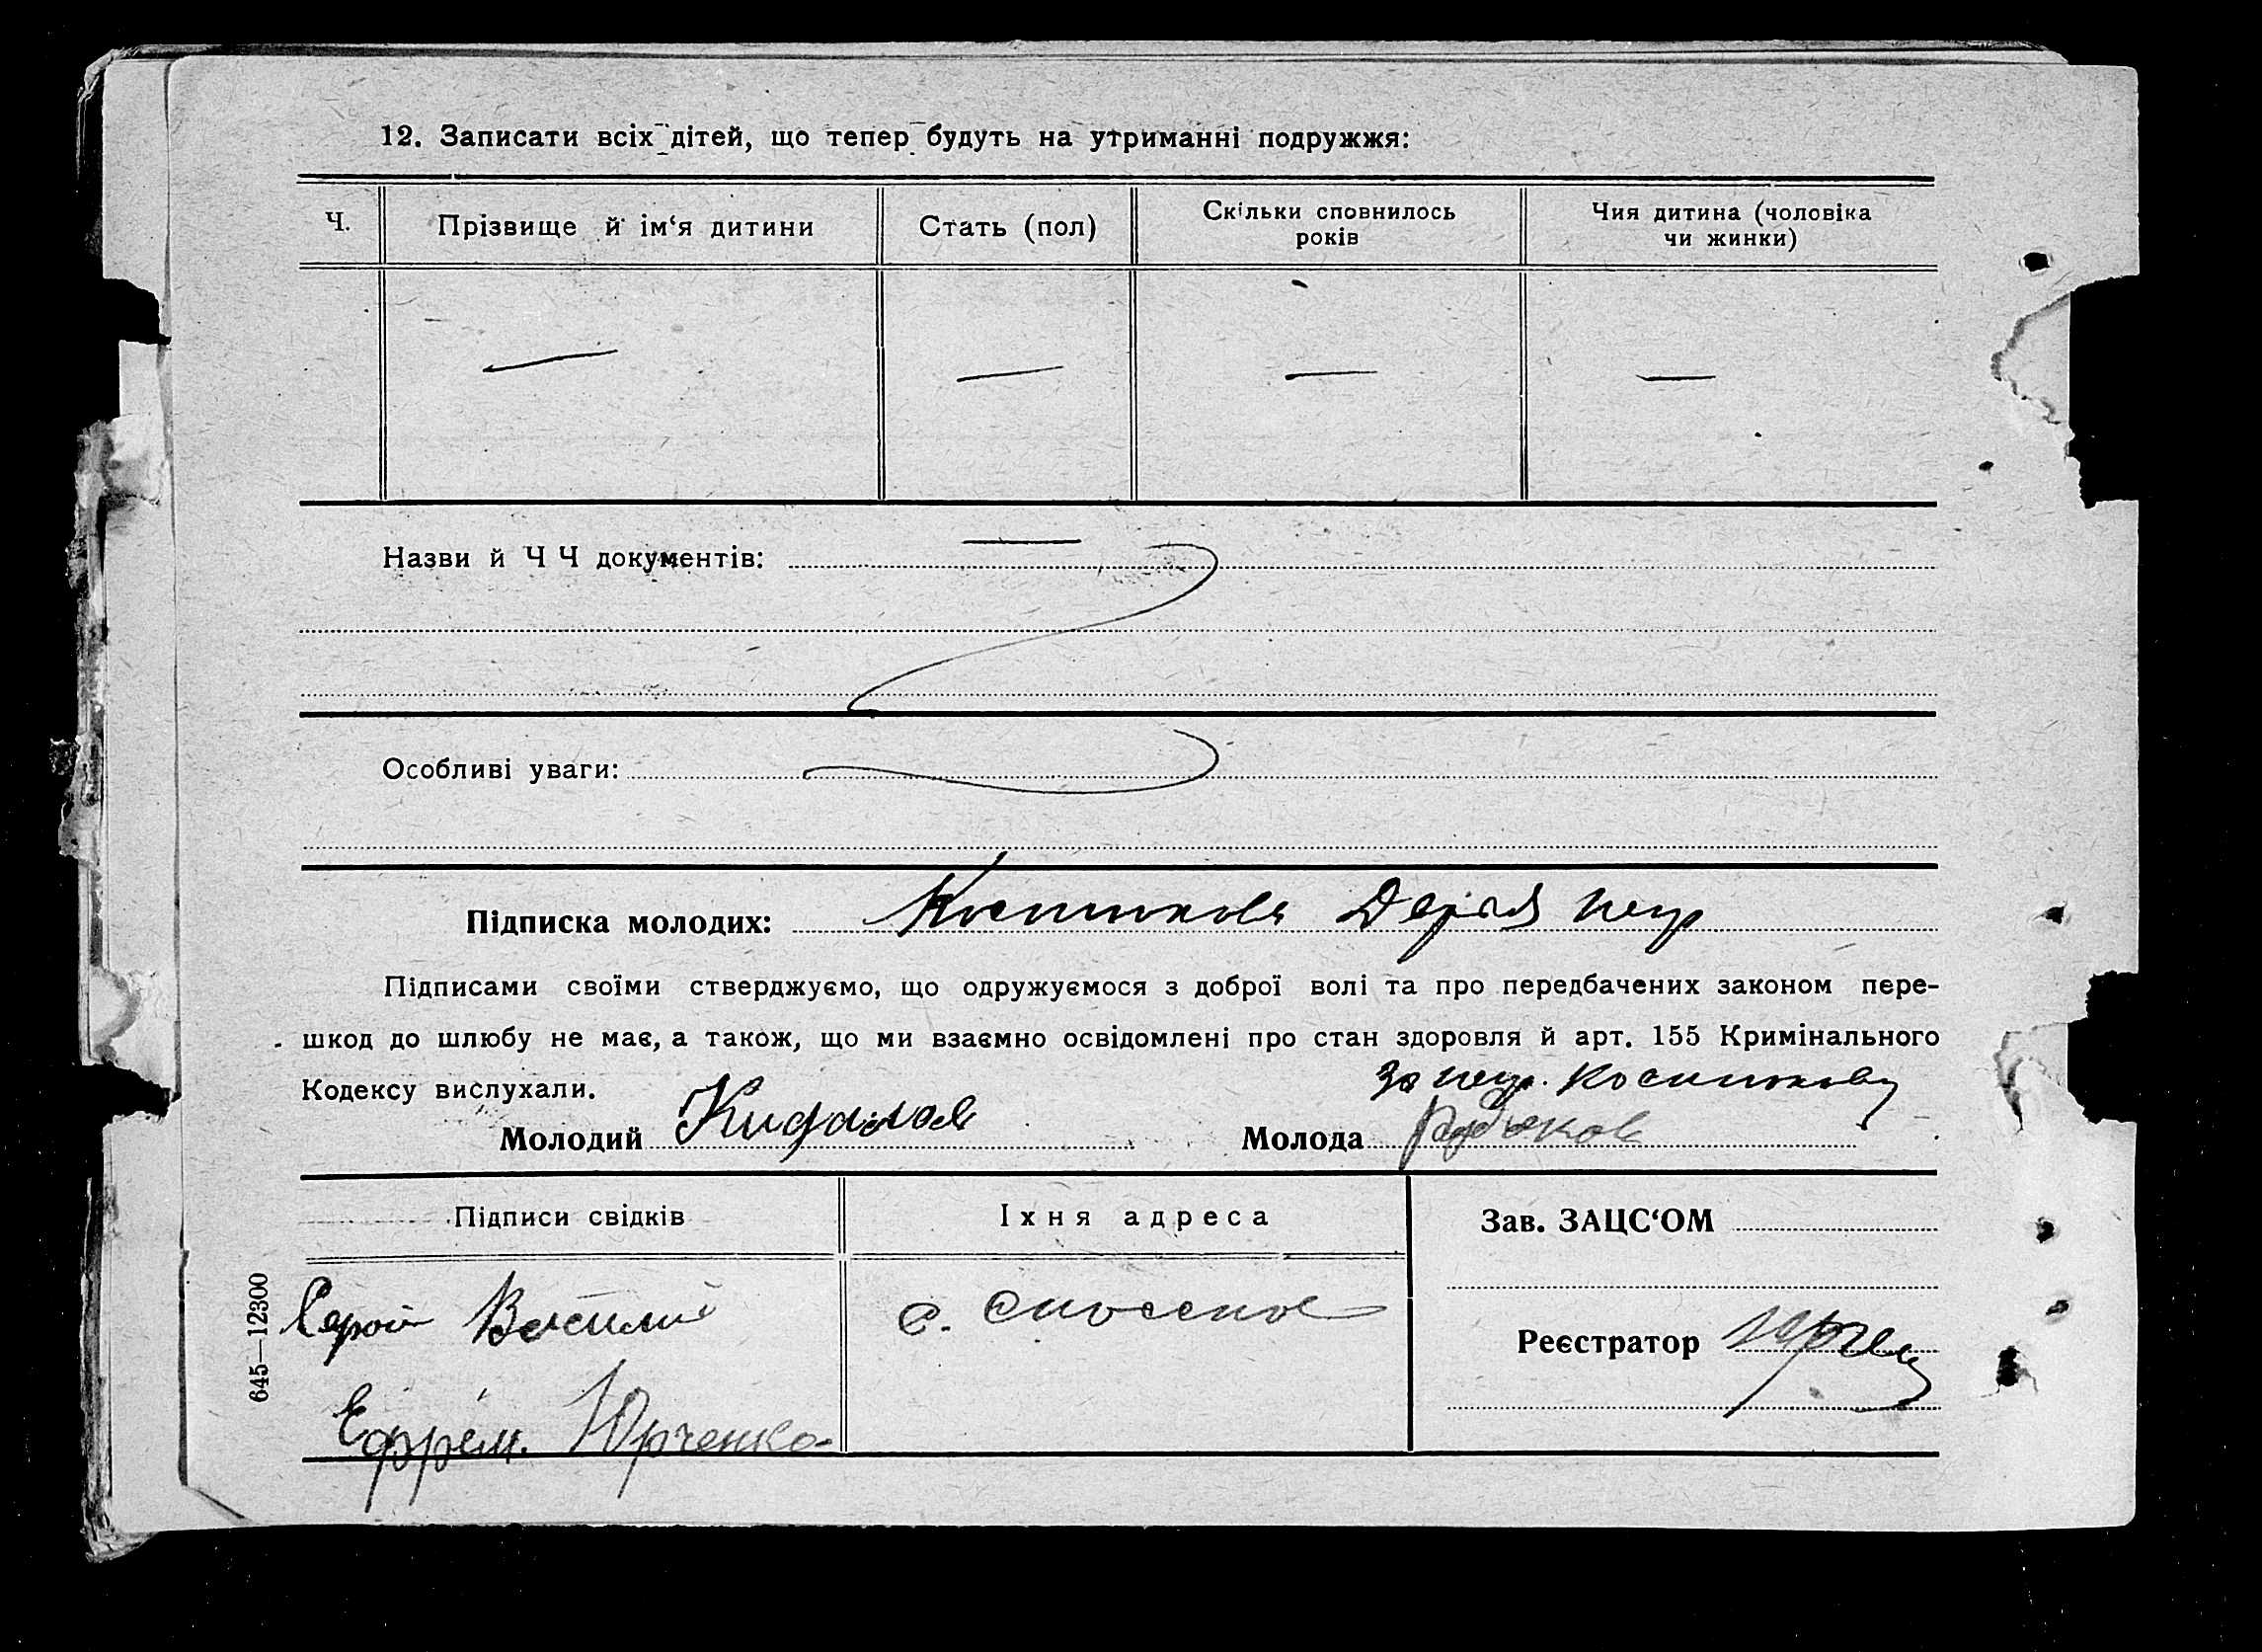 12. Записати всіх дітей, що тепер будуть на утриманні подружжя:
Ч.
Прізвище й ім‘я дитини
Стать (пол)
Скільки сповнилось
років
Чия дитина (чоловіка
чи жинки)
— — — —
Назви й Ч Ч документів: —
Особливі уваги:
Підписка молодих: Дарья
Підписами своїми стверджуємо, що одружуємося з доброї волі та про передбачених законом пере-
шкод до шлюбу не має, а також, що ми взаємно освідомлені про стан здоровля й арт. 155 Кримінального
Кодексу вислухали.
За негр.
Молодий
Молода
Підписи свідків
Їхня адреса
Зав. ЗАЦС‘ОМ
Василий
с. Спасское
Реєстратор
Ефрем. Юрченко
645—12300